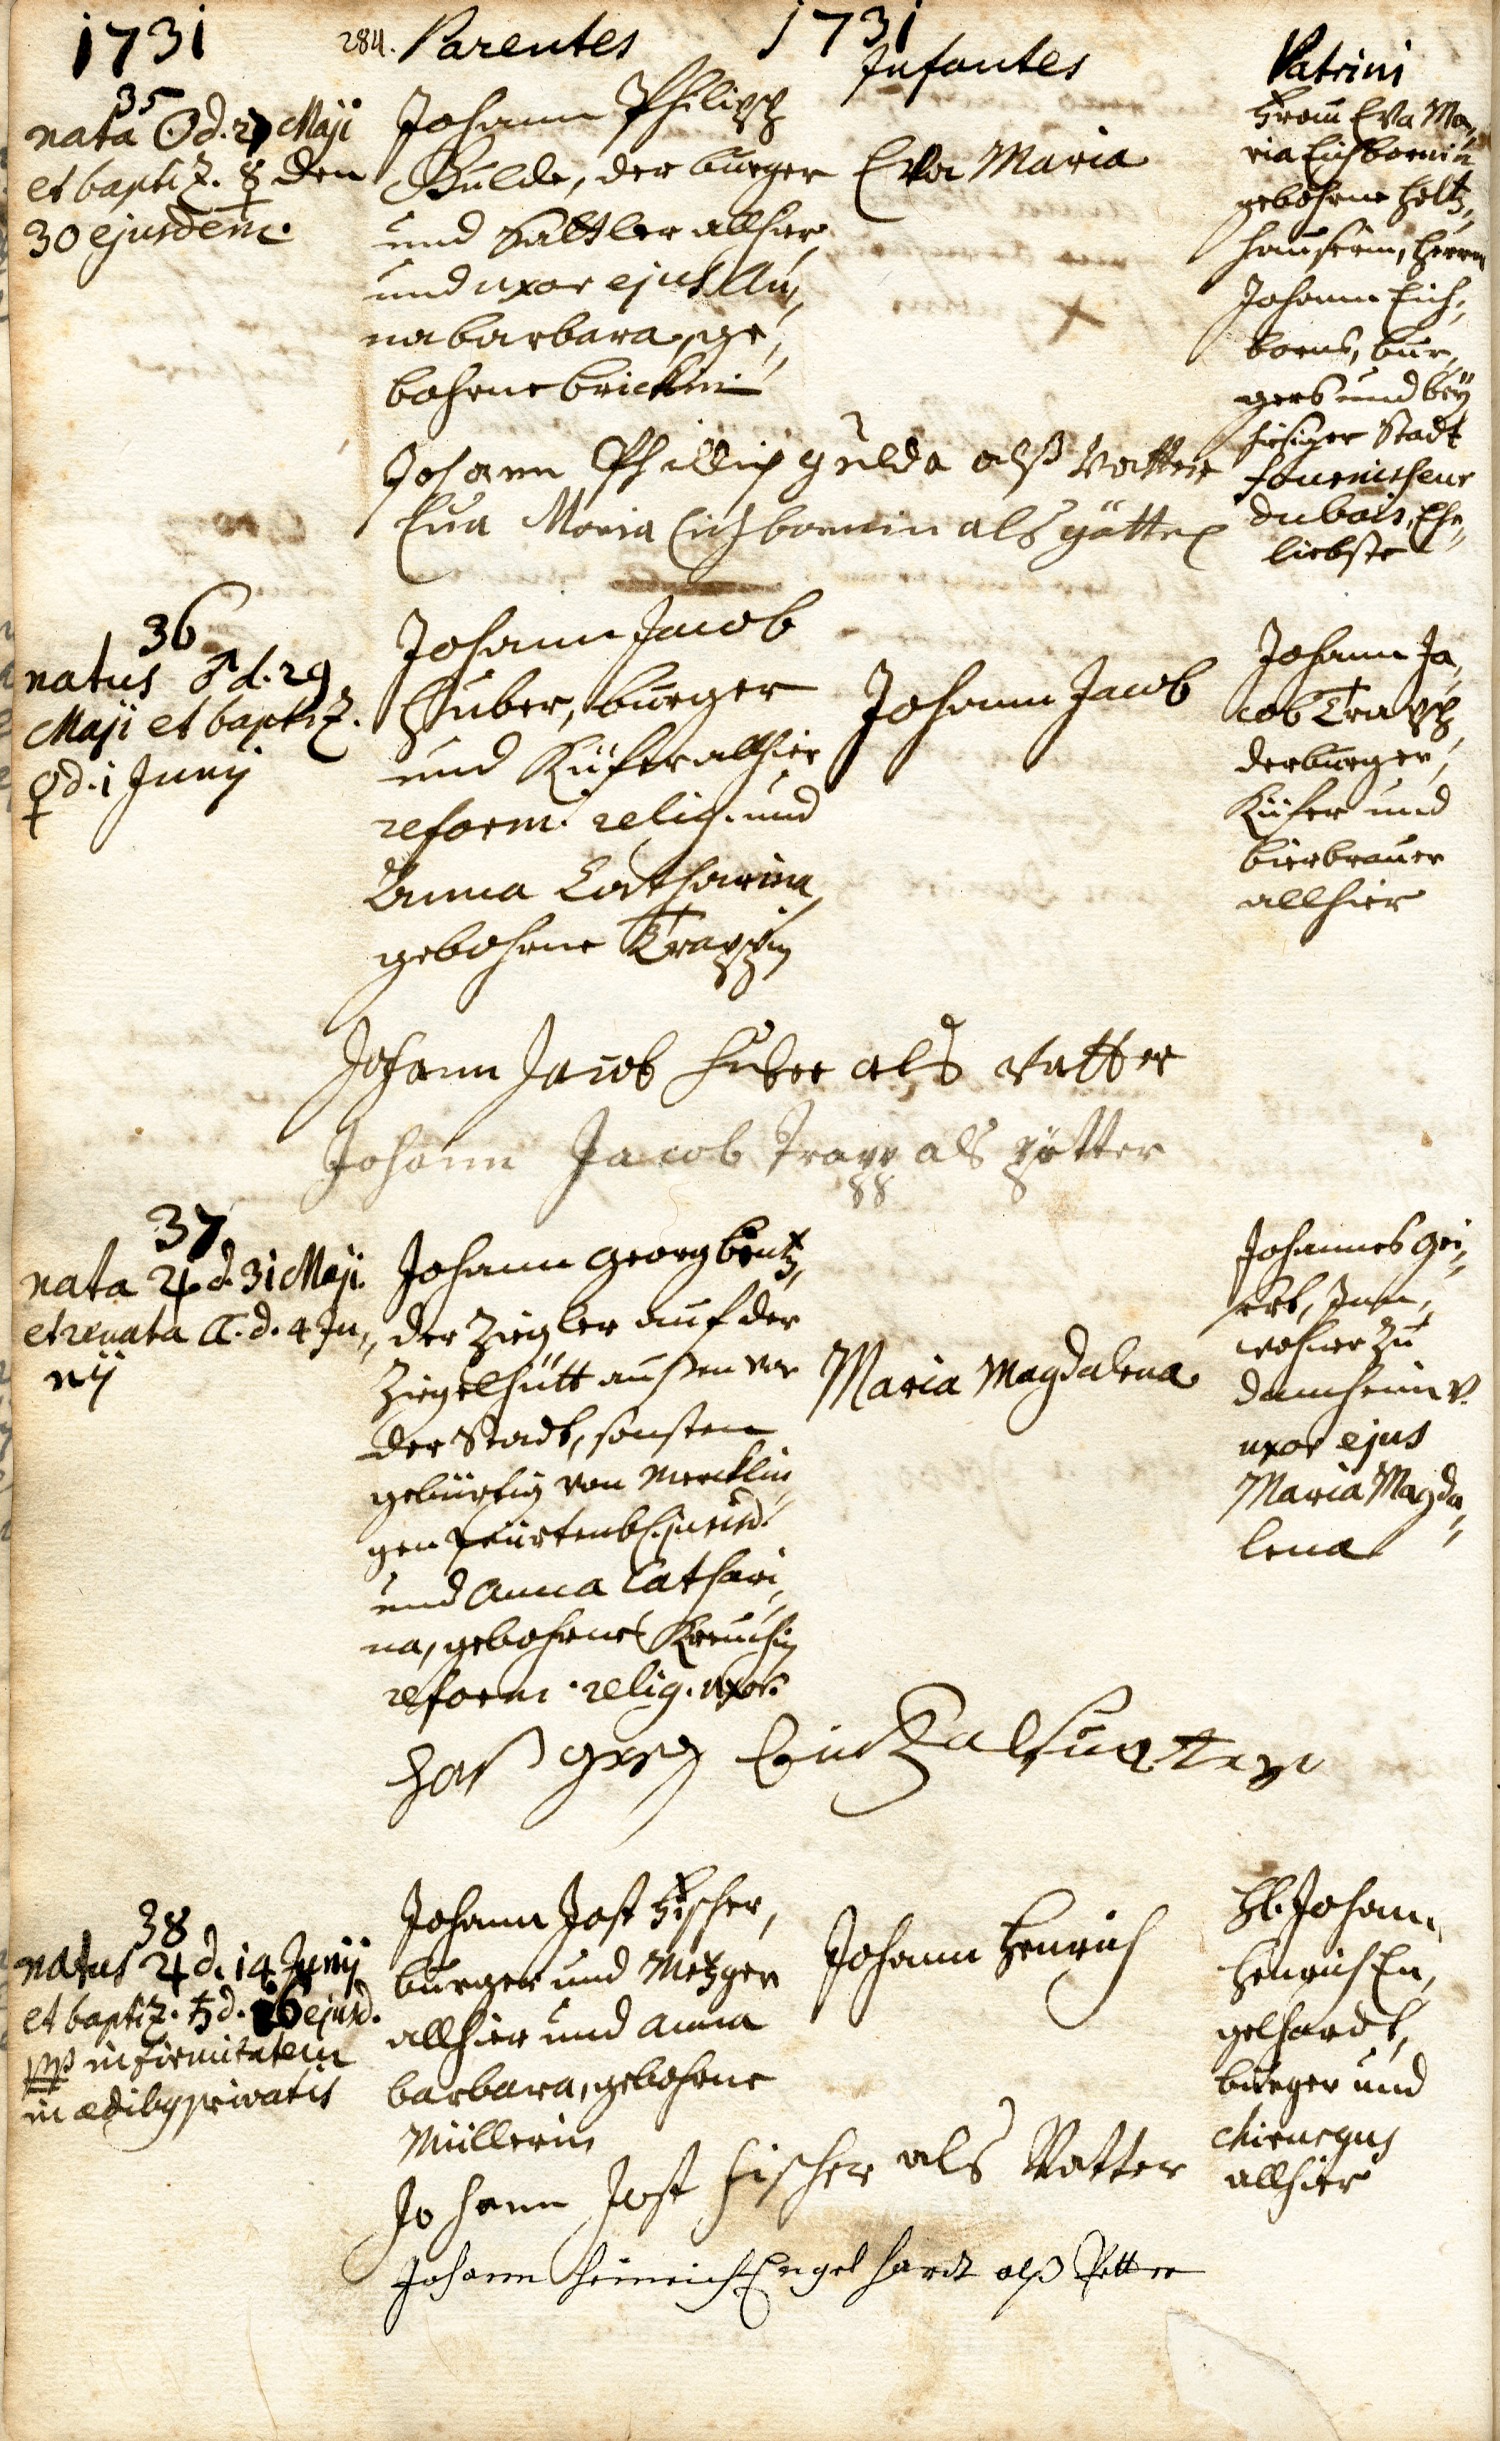 1731 284. Parentes 1731 Infantes Patrini
35
nata ☉ d. 27 Maji
et baptiz. ☿ den
30 ejusdem.
Johann Philipp
Gulde, der burger
und Sattler allhier,
und uxor ejus An,,
na barbara, ge,,
bohrne bricklin
Eva Maria
Frau Eva Ma,,
ria Eichbornin
gebohrne Holtz,,
hauserin, Herrn
Johann Eich,,
borns, bur,,
gers und bey
hiesiger Stadt
fournisseur
du bois, Ehe,,
liebste
Johann Phillip gulde alß Vatter
Eua Maria Eichbornin als götter
36
natus ♂ d. 29
Maji et baptiz.
♀ d. 1 Junij
Johann Jacob
Huber, burger
und Küfer allhier
reform. relig. und
Anna Catharina,
gebohrne Trappin
Johann Jacob
Johann Ja,,
cob Trapp
der burger,
Küfer und
bierbrauer
allhier
Johann Jacob huber als Vatter
Johann Jacob Trapp als götter
37
nata ♃ d. 31 Maji.
et renata ☾. d. 4 Ju,,
nij
Johann Georg bentz,
der Ziegler auf der
Ziegelhütt außen vor
der Stadt, sonsten
gebürtig von Mercklin,,
gen
und Anna Cathari,,
na, gebohrne
reform. relig. uxor.
Maria Magdalena
Johannes Gei,,
ert, Inn,,
wohner zu
Damheim v.
uxor ejus
Maria Magda,,
lena
38
natus ♃ d. 14 Junij
et baptiz. ♄ d. 16 ejusd.
pp infirmitatem
in ædibus privatis
Johann Jost Fischer,
burger und Metzger
allhier und Anna
barbara, gebohrne
Müllerin
Johann Henrich
H. Johann
Henrich En,,
gelhardt,
burger und
chirurgus
allhier
Johann Jost fischer als Vatter
Johann Heinrich Engelhardt alß Petter